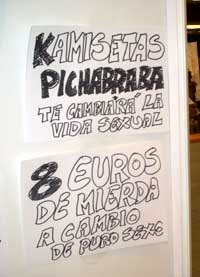 KAMISETAS
PICHABRABA
TE CAMBIARÁ LA
VIDA SEXUAL
8 EUROS
DE MIERDA
A CAMBIO
DE PURO SEXO